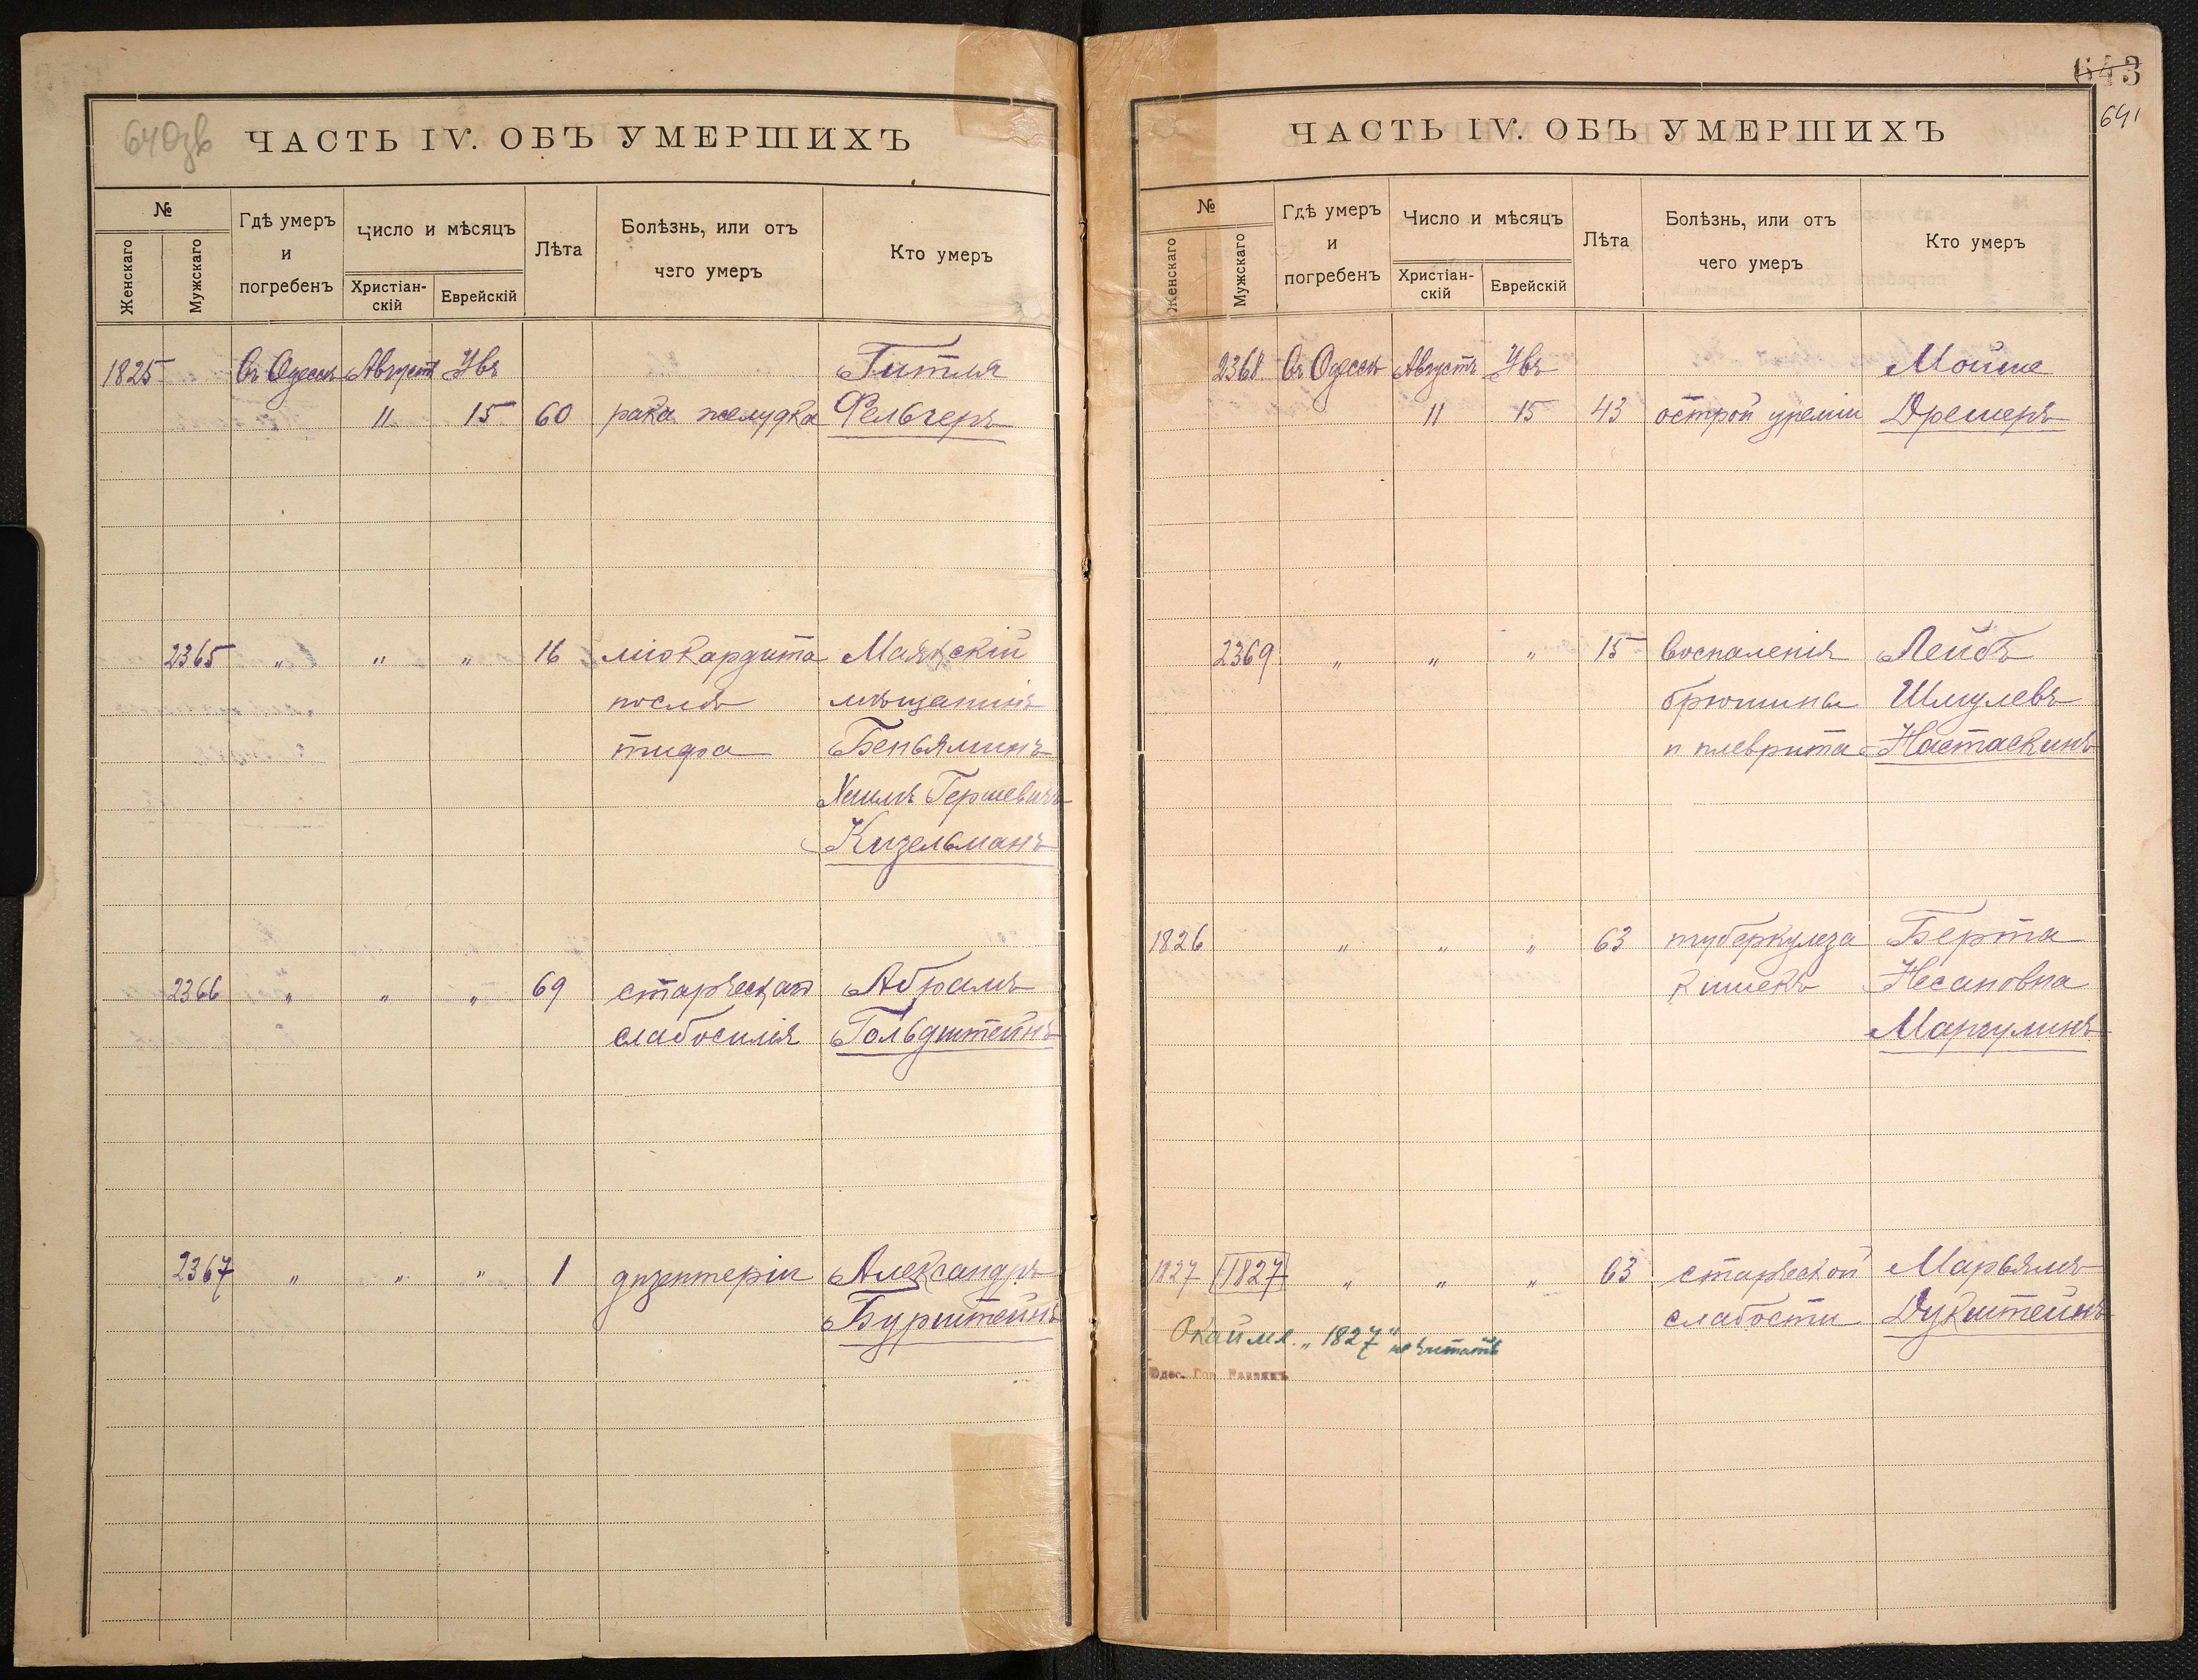 640зв
ЧАСТЬ IV. ОБЪ УМЕРШИХЪ
№
Женскаго
Мужскаго
Гдѣ умеръ
и
погребенъ
Число и мѣсяцъ
Христіан-
скій
Еврейскій
Лѣта
Болѣзнь, или отъ
чего умеръ
Кто умеръ
1825 Въ Одессѣ Августъ Увъ Гитля
11 15 60 рака желудка Фельчеръ
2365 " " " 16 міокардита Маякскій
послѣ мѣщанинъ
тифа Беньяминъ
Хаимъ Гершевичъ
Кизельманъ
2366 " " " 69 старческаго Абрамъ
слабосилія Гольдштейнъ
2367 " " " 1 дизентеріи Александръ
Бурштейнъ
643
641
ЧАСТЬ IV. ОБЪ УМЕРШИХЪ
№
Женскаго
Мужскаго
Гдѣ умеръ
и
погребенъ
Число и мѣсяцъ
Христіан-
скій
Еврейскій
Лѣта
Болѣзнь, или отъ
чего умеръ
Кто умеръ
2368 Въ Одессѣ Августъ Увъ Мойше
11 15 43 острой уреміи Дрешеръ
2369 " " " 15 воспаленія Лейбъ
брюшины Шмулевъ
и плеврита Настаскинъ
1826 " " " 63 туберкулеза Берта
кишекъ Несановна
Маргулинъ
1827 1827 " " " 63 старческой Марьямъ
слабости Дукштейнъ
Окаймл. „1827" не читать
Одес. Гор. Раввинъ